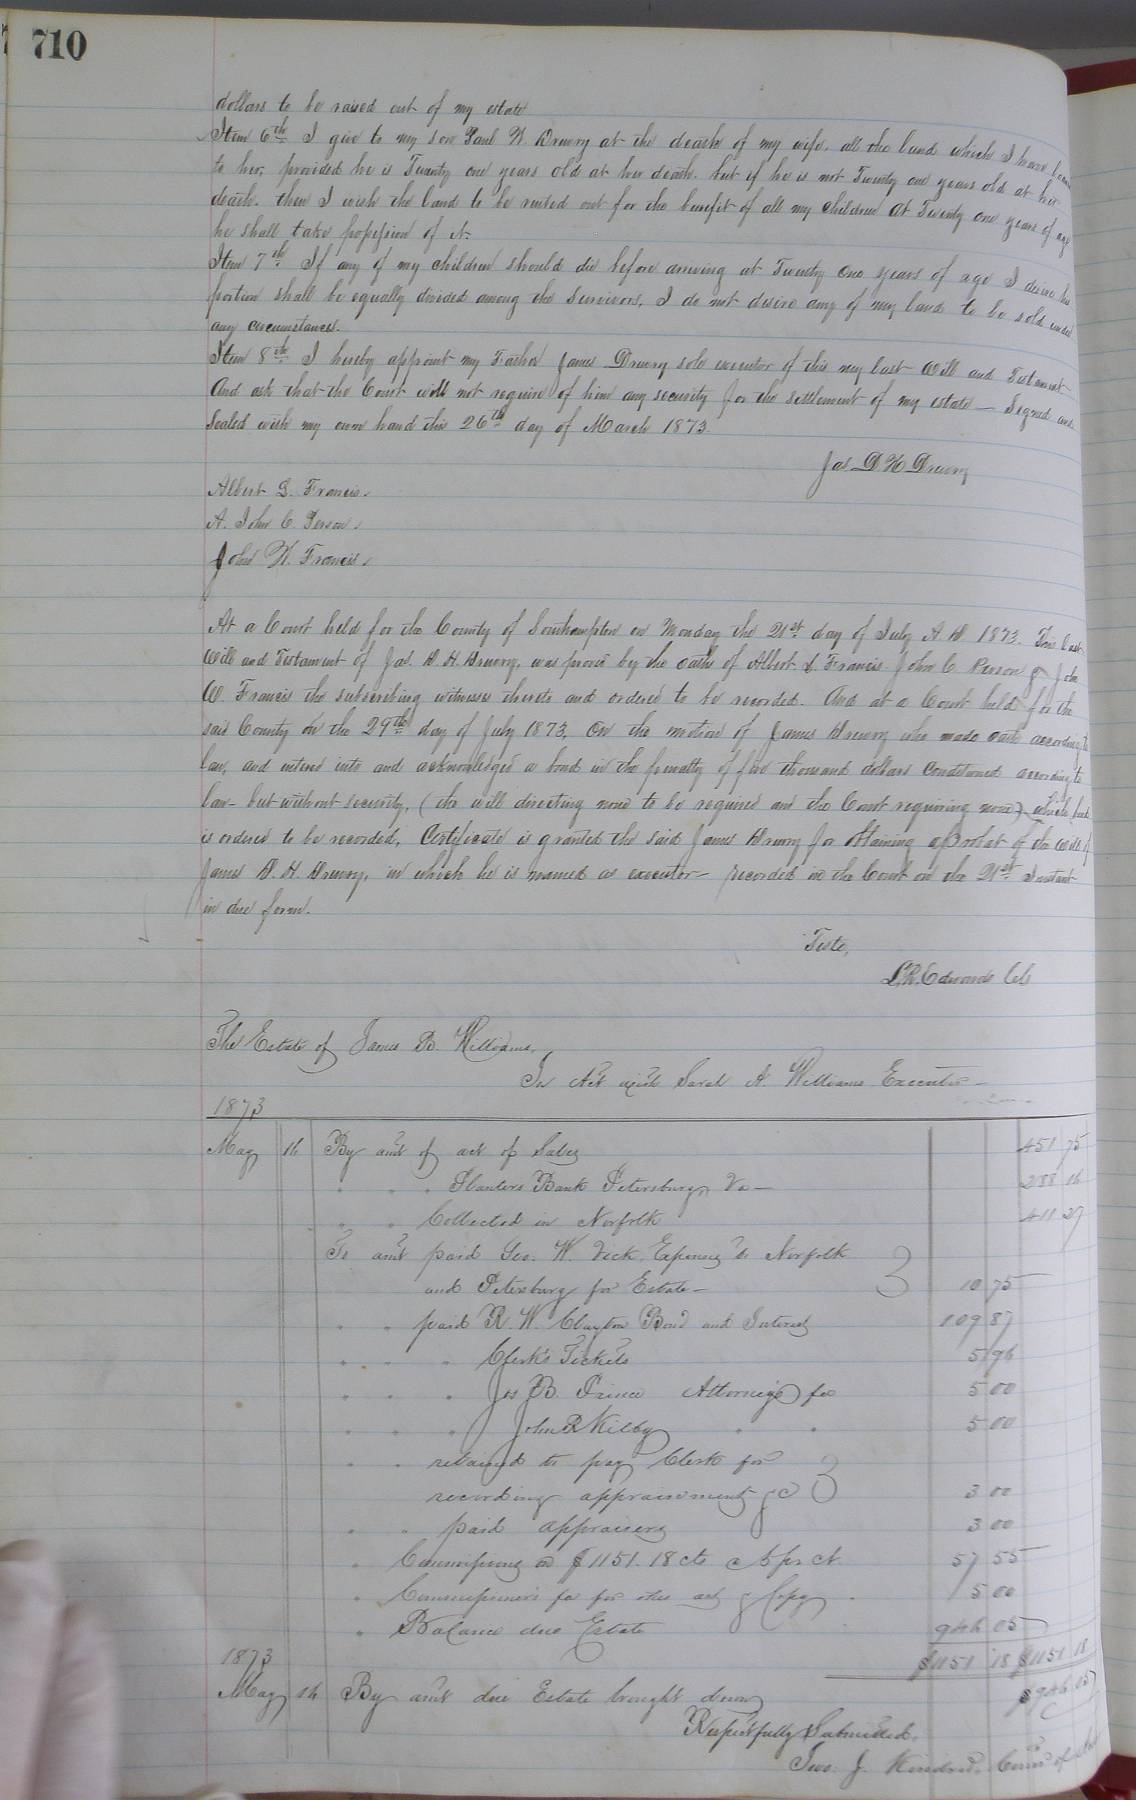 710
dollars to be raised out of my estate
Item 6th I give to my son Paul W. Drewry at the death of my wife, all the land which I have
to her, provided he is Twenty one years old at her death, but if he is not Twenty one years old at her
death, then I wish the land to be rented out for the benefit of all my children At Twenty one years of age
he shall take possession of it.
Item 7th If any of my children should die before arriving at Twenty one years of age I desire his
portion shall be equally divided among the survivors, I do not desire any of my land to be sold under
any circumstances.
Item 8th I hereby appoint my Father James Drewry sole executor of this my last Will and Testament
And ask that the Court will not require of him any security for the settlement of my estate — Signed and
Sealed with my own hand this 26th day of March 1873.
Jas D H Drewry
Albert L. Francis
A. John C. Person
John W. Francis
At a Court held for the County of Southampton on Monday the 21st day of July A D 1873. This last
Will and Testament of Jas. D. H. Drewry, was proved by the oaths of Albert L. Francis John C Person & John
W. Francis the subscribing witnesses thereto and ordered to be recorded. And at a Court held for the
said County on the 29th day of July 1873, On the motion of James Drewry who made oath according to
law, and entered into and acknowledged a bond in the penalty of five thousand dollars conditioned according to
law - but without security, (the will directing none to be required and the Court requiring none) which bond
is ordered to be recorded, Certificate is granted the said James Drewry for obtaining a probat of the will of
James D. H. Drewry, in which he is named as executor - recorded in the Court on the 21st Instant
in due form.
Teste,
L. R. Edwards Clk
The Estate of James B. Williams,
In Act with Sarah A. Williams Executor
1873
May 16 By amt of act of Sales 451 75
" " " Planters Bank Petersburg Va — 288 16
" " Collected in Norfolk 411 27
To amt paid Geo. W. Vick Expenses to Norfolk
and Petersburg for Estate — 10 75
" " paid R. W. Clayton Bond and Interest 109 87
" " " Clerk's Tickets 5 96
" " " Jos B. Prince Attorneys fee 5 00
" " " John R Kilby " " 5 00
" " retained to pay Clerk for
recording appraisement &c 3 00
" " paid appraisers 3 00
" Commissions on $1151.18 cts @ 5 pr ct 57 55
" Commissioner's fee for this act & Copy 5 00
" Balance due Estate 946 05
$1151 18 $1151 18
1873
May 16 By amt due Estate brought down $946 05
Respectfully Submitted,
Geo. J. Kindred, Comr of